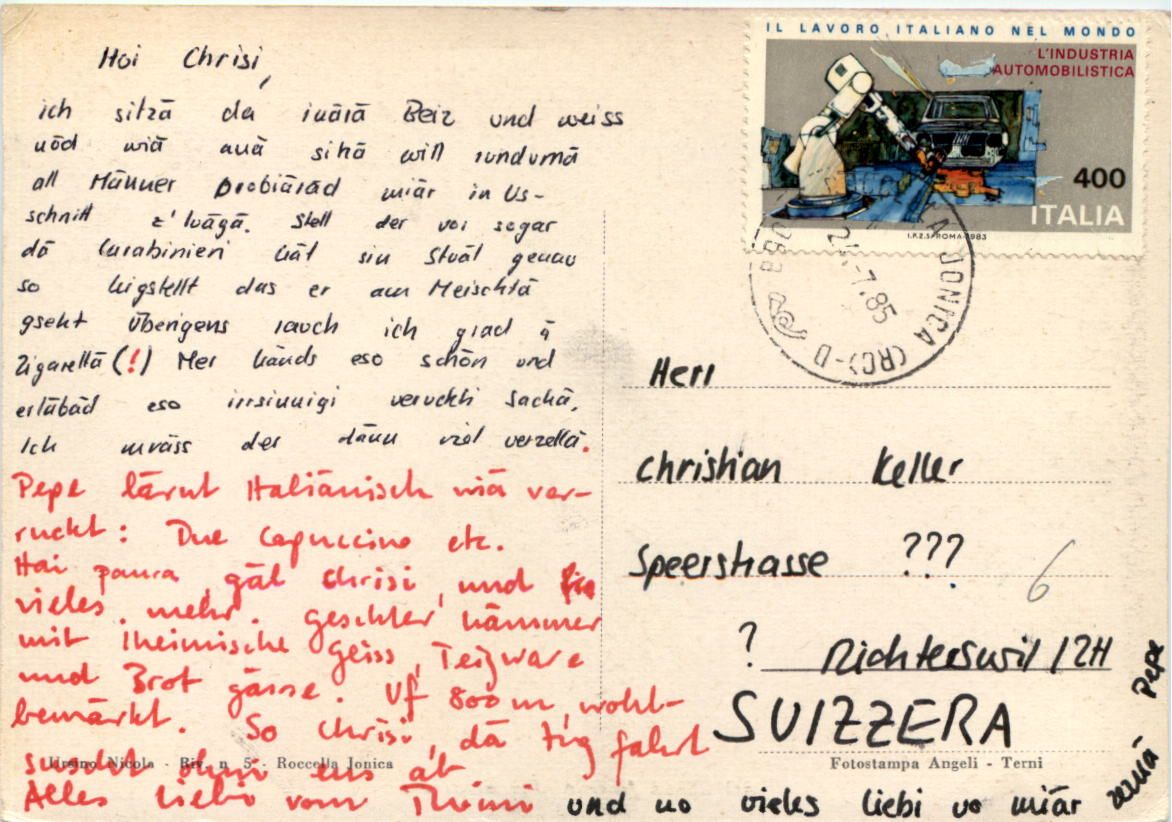 Hoi Chrisi,
ich sitzä da inärä Beiz und weiss
nöd wiä anä sihä will rundumä
all Männer probiäräd miär in Us-
schnitt z'luägä. Stell der voi sogar
dä Carabinieri hät sin Stuäl genau
so higstellt das er am Meischtä
gseht Überigens rauch ich grad ä
Zigarettä (!) Mer händs eso schön und
erläbäd eso irrsinnigi veruckti Sachä,
Ich muäss der dänn viel verzellä.
Pepe lärnt Italiänisch wiä ver-
ruckt: Due Capuccino etc.
Hai paura, gäl Chrisi, und
vieles mehr. Geschter hämmer
mit iheimische Geiss, Teigware
und Brot gässe. Uf 800 m, wohl-
bemärkt. So Chrisi, dä Zug fahrt
suscht ohni eus ab
Alles Liebi vom und no vieles liebi vo miär
Pepe
IL LAVORO ITALIANO NEL MONDO
L'INDUSTRIA
AUTOMOBILISTICA
400
ITALIA
I.P.Z.S. ROMA 1983
JONICA (RC)
7.85
Herr
Christian Keller
Speerstrasse ???
6
? Richterswil / ZH
SUIZZERA
Ursino Nicola - Riv. n 5 - Roccella Jonica
Fotostampa Angeli - Terni